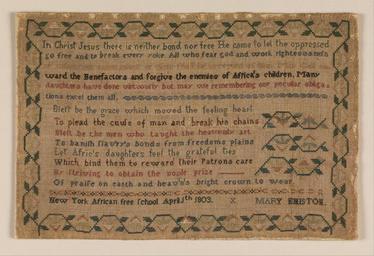 In Christ Jesus there is neither bond nor free He came to let the oppressed
go free and to break every yoke. All who fear god and work righteousness
ward the Benefactors and forgive the enemies of Affrick's children. Many
daughters have done virtuously but may we remembering our peculiar obliga
tions excel them all.
Blest be the grace which moved the feeling heart
To plead the cause of man and break his chains
Blest be the men who taught the heavenly art
To banish slav'ry's bonds from freedoms plains
Let Afric's daughters feel the grateful ties
Which bind them to reward their Patrons care
By striving to obtain the noble prize
Of praise on earth and heav'n's bright crown to wear
New York African free School April 1th 1803. X MARY EMISTON.